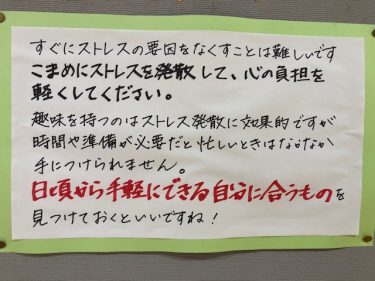 すぐにストレスの要因をなくすことは難しいです
こまめにストレスを発散して、心の負担を
軽くしてください。
趣味を持つのはストレス発散に効果的ですが
時間や準備が必要だと忙しいときはなかなか
手につけられません。
日頃から手軽にできる自分に合うものを
見つけておくといいですね！